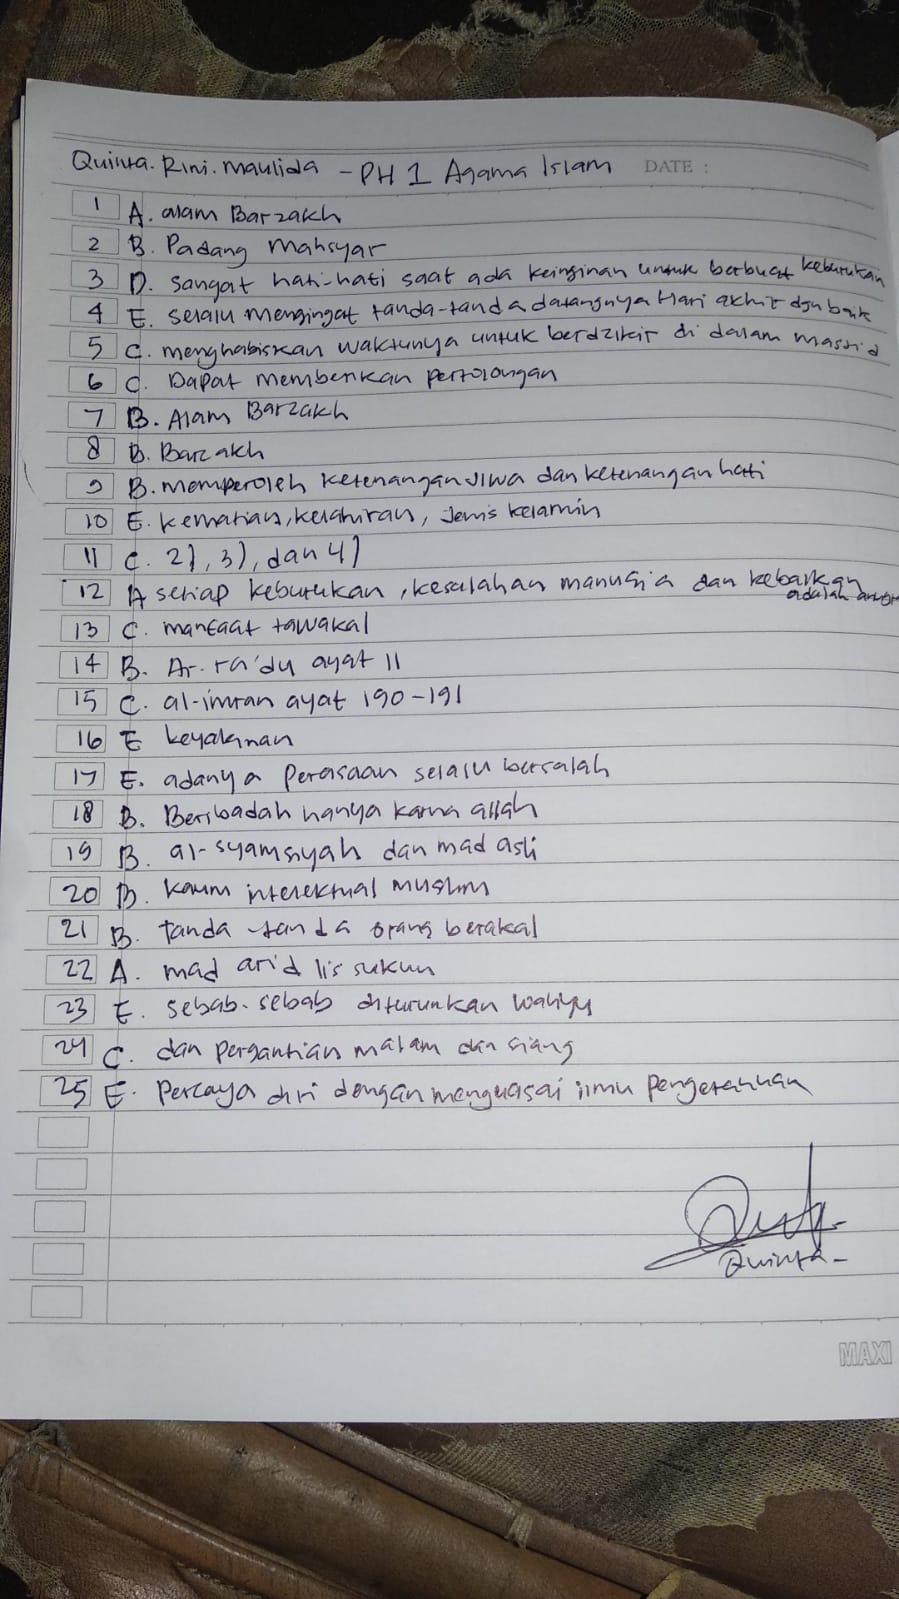 Quinta. Rini. Maulida - PH 1 Agama Islam DATE :
1 A. alam Barzakh
2 B. Padang Mahsyar
3 D. sangat hati-hati saat ada keinginan untuk berbuat keburukan
4 E. selalu mengingat tanda-tanda datangnya Hari akhir dgn baik
5 C. menghabiskan waktunya untuk berdzikir di dalam masjid
6 C. Dapat memberikan pertolongan
7 B. Alam Barzakh
8 D. Barzakh
9 B. memperoleh ketenangan jiwa dan ketenangan hati
10 E. kematian, kelahiran, Jenis kelamin
11 C. 2), 3), dan 4)
12 A setiap keburukan, kesalahan manusia dan kebaikan
adalah
13 C. manfaat tawakal
14 B. Ar-ra'du ayat 11
15 C. al-imran ayat 190-191
16 E keyakinan
17 E. adanya perasaan selalu bersalah
18 B. Beribadah hanya karna allah
19 B. al-syamsiyah dan mad asli
20 D. kaum intelektual muslim
21 B. tanda-tanda orang berakal
22 A. mad arid lis sukun
23 E. sebab-sebab diturunkan wahyu
24 C. dan pergantian malam dan siang
25 E. Percaya diri dengan menguasai ilmu pengetahuan
Quinta-
MAXI